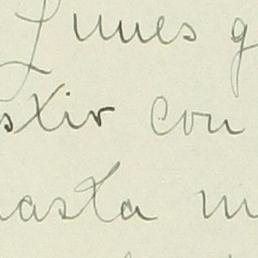 Lunes g
stir con
hasta m